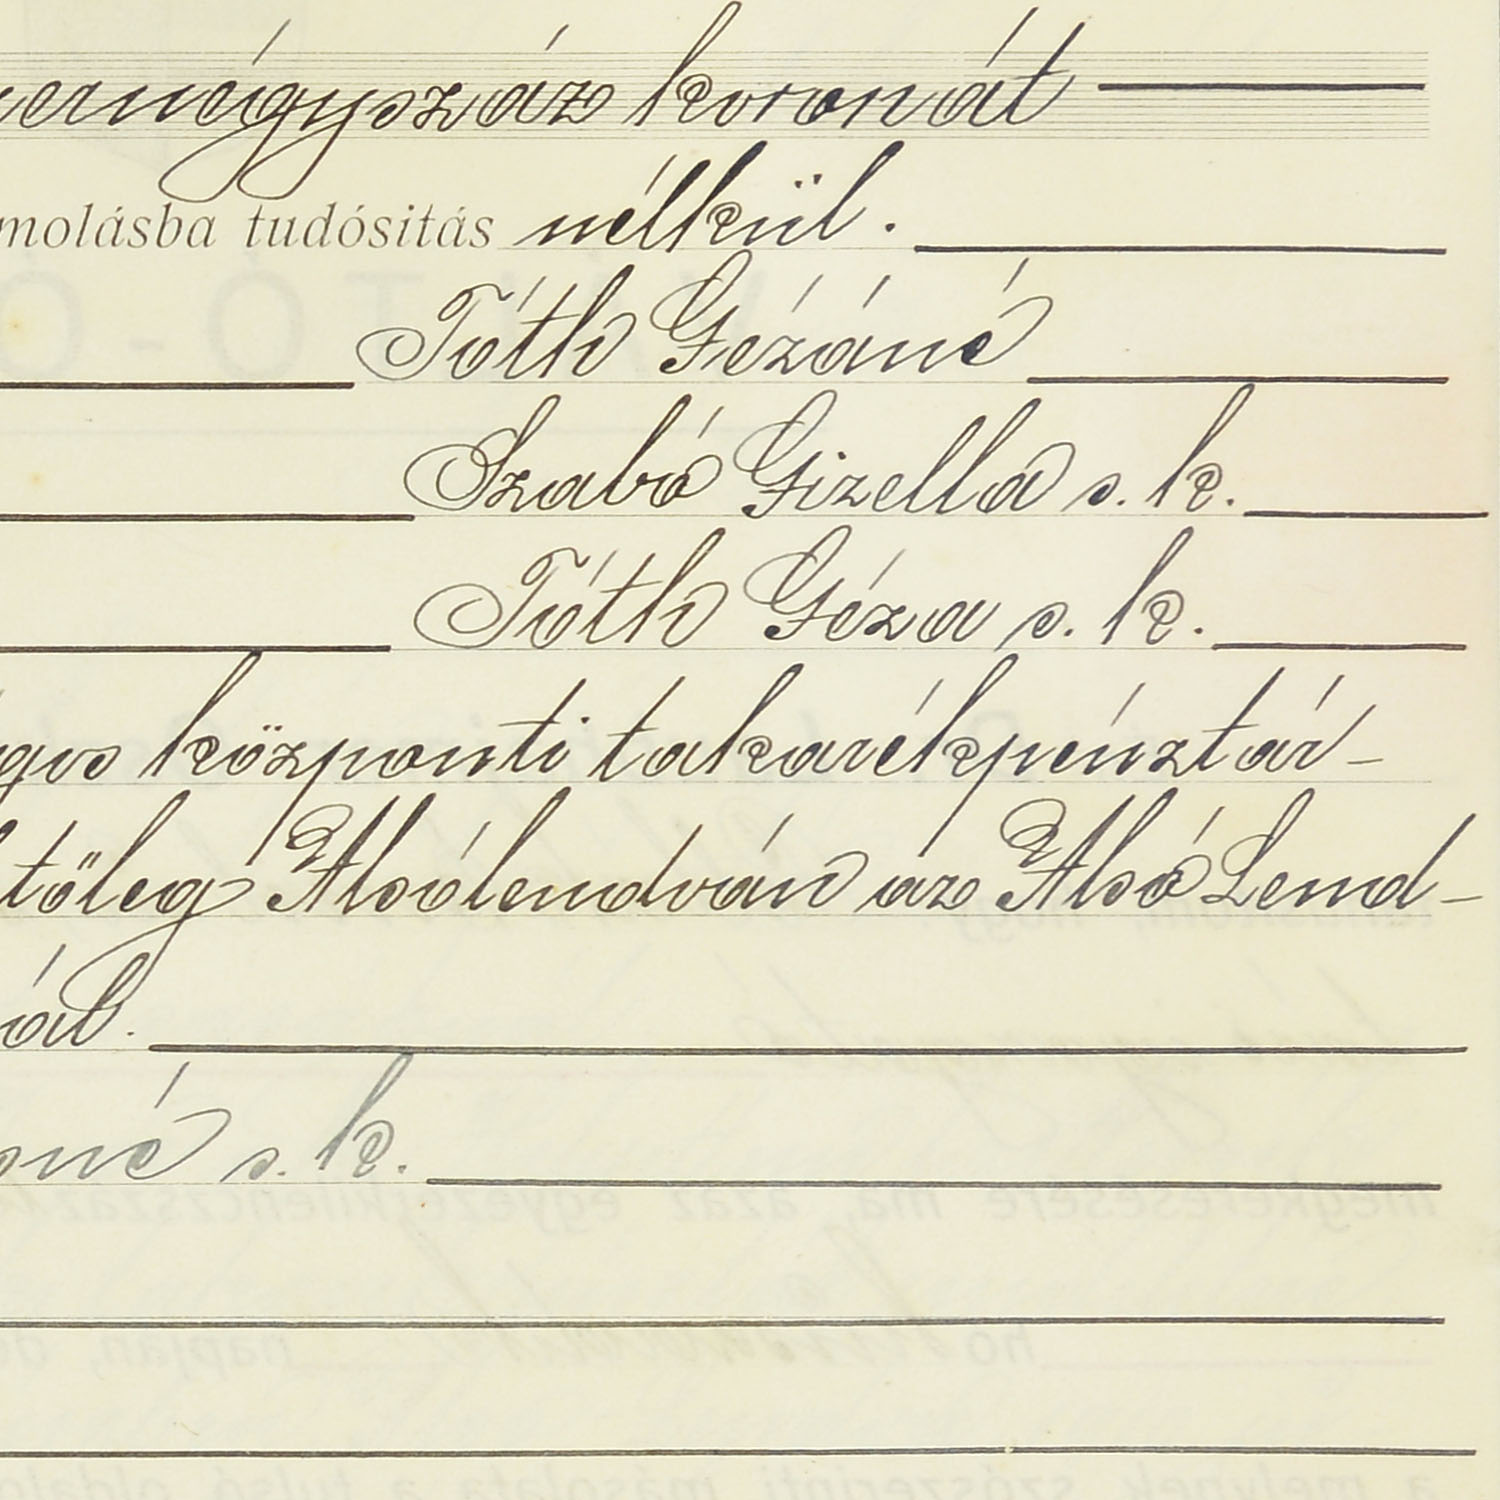 ernégyszáz koronát
molásba tudósitás nélkül.
Tóth Gézáné
Szabó Gizella s. k.
Tóth Géza s. k.
gos központi takarékpénztár-
tőleg Alsólendván az Alsó Lend-
ál.
né s. k.